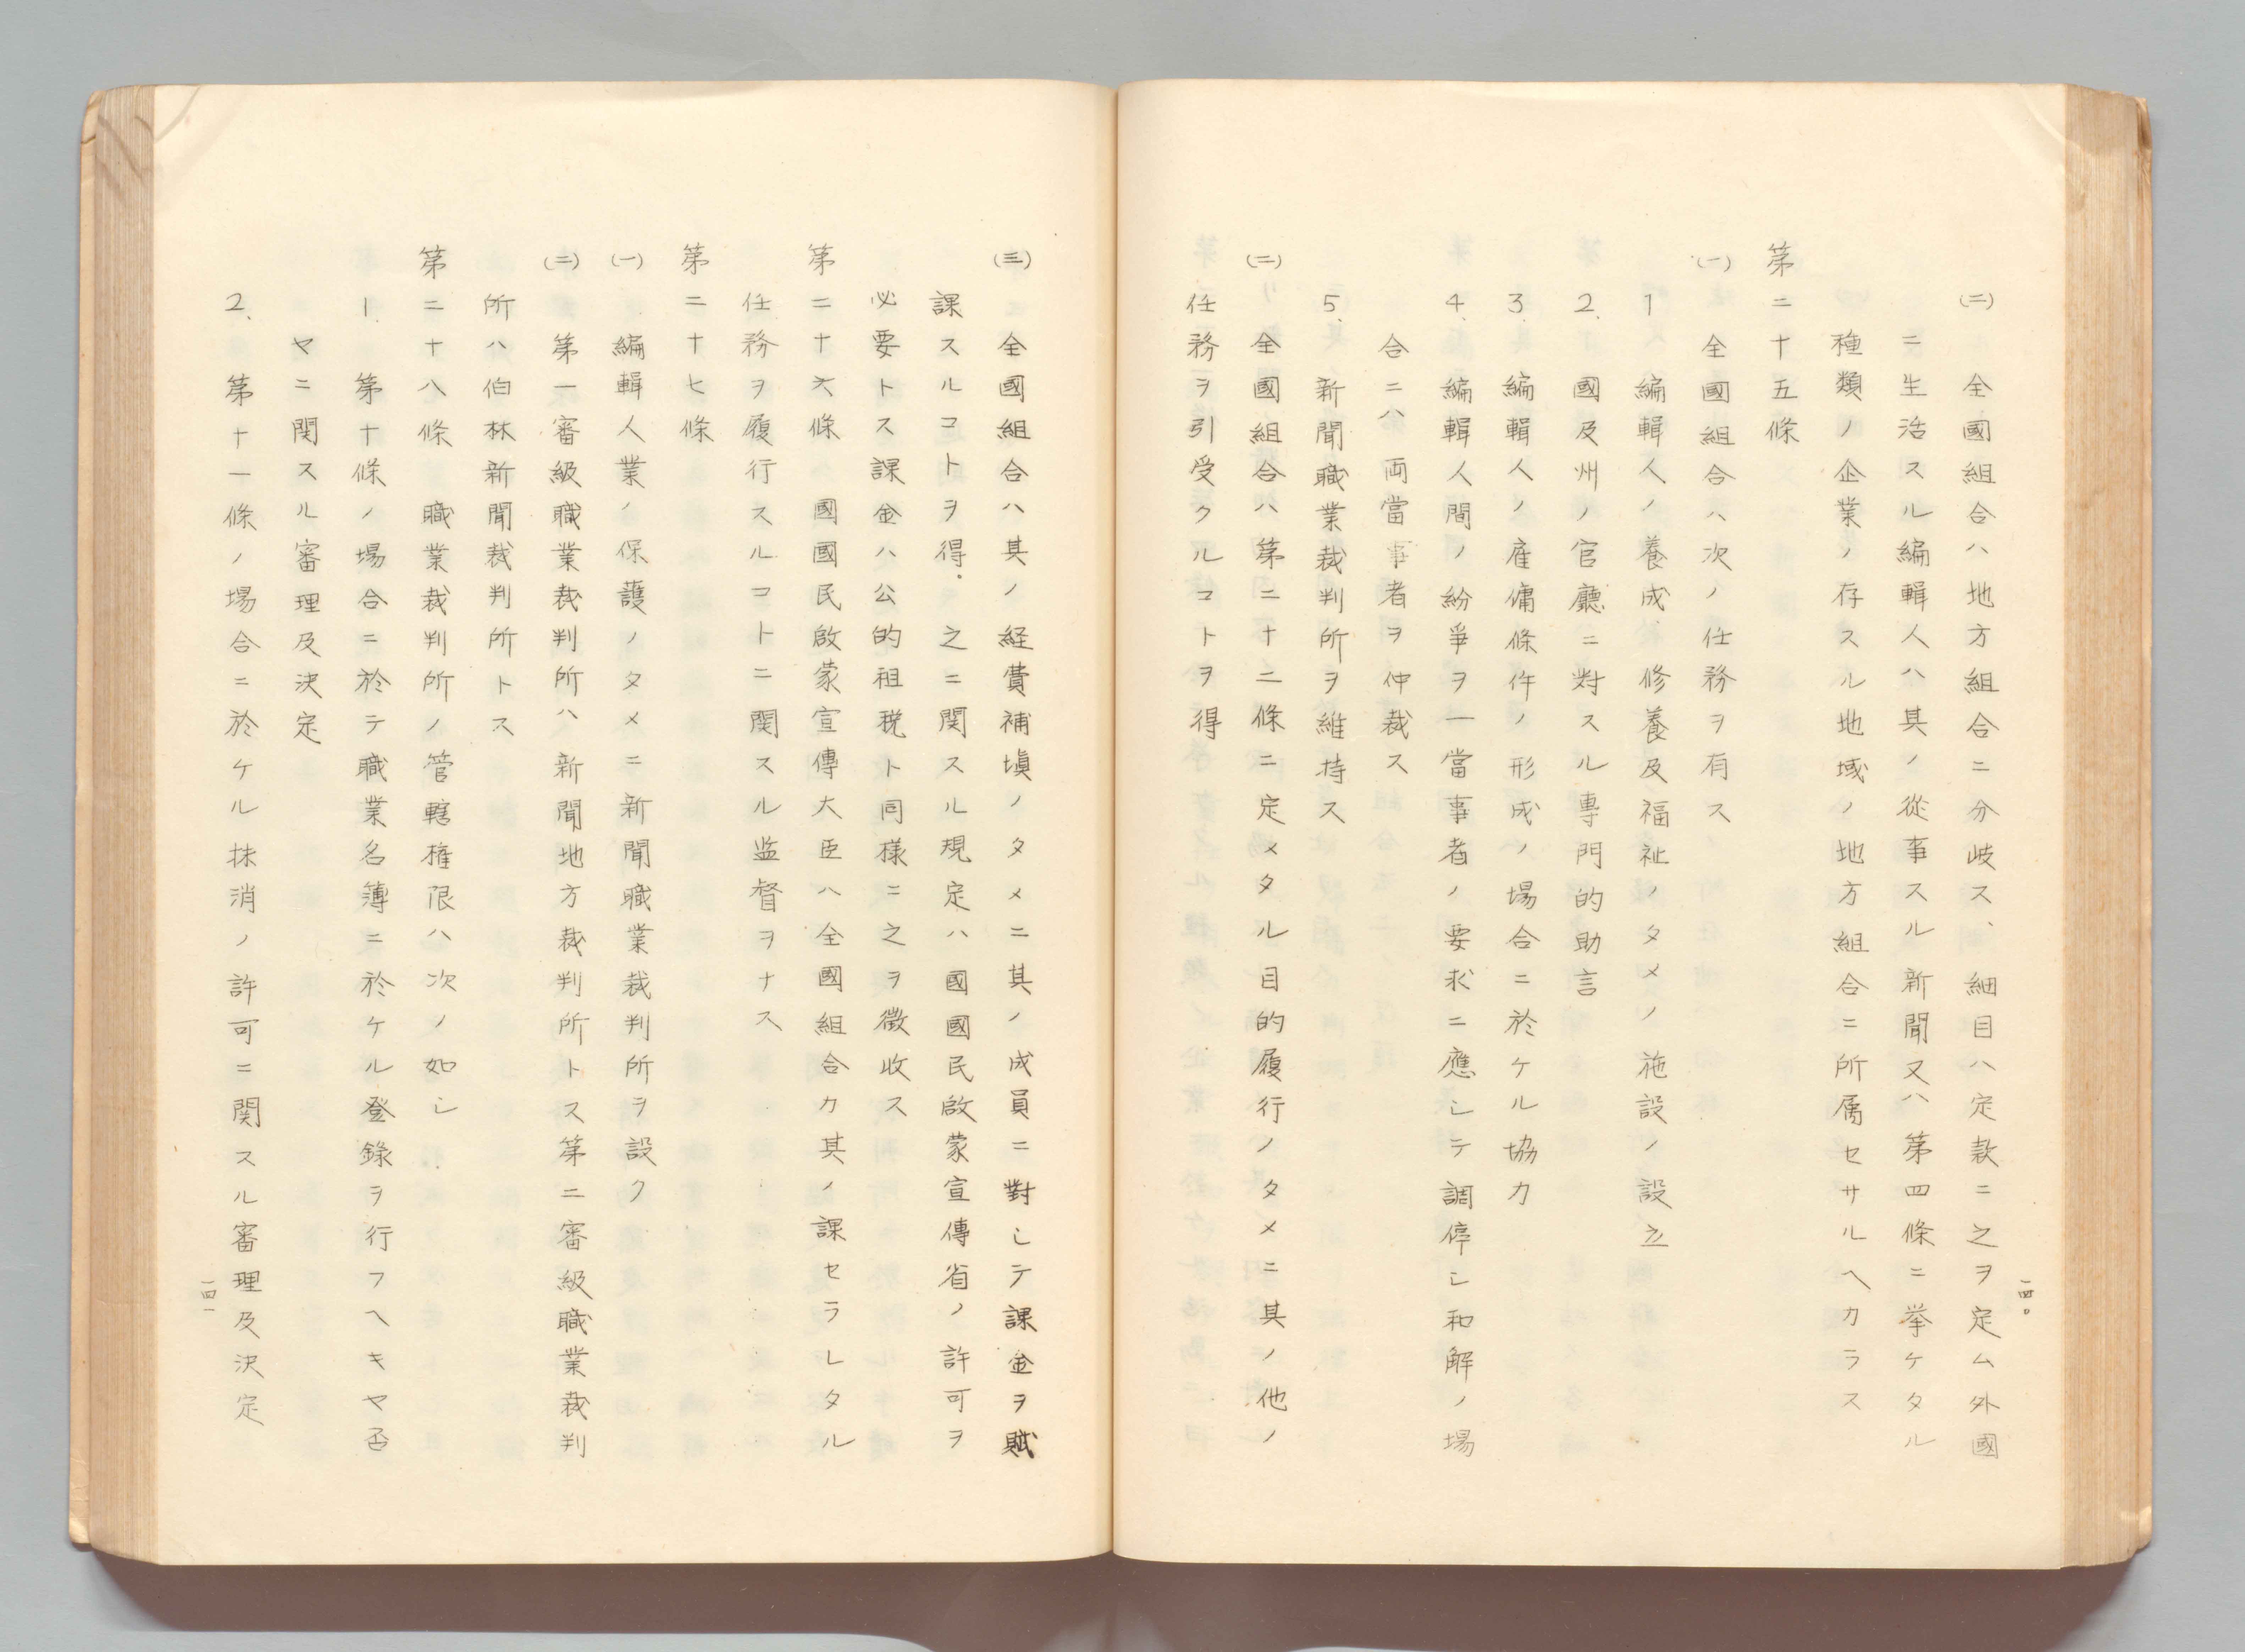 (二) 全國組合ハ地方組合ニ分岐ス、細目ハ定款ニ之ヲ定ム外國
ニ生活スル編輯人ハ其ノ從事スル新聞又ハ第四條ニ挙ケタル
種類ノ企業ノ存スル地域ノ地方組合ニ所属セサルヘカラス
第二十五條
(一) 全國組合ハ次ノ任務ヲ有ス
1 編輯人ノ養成、修養及福祉ノタメノ施設ノ設立
2. 國及州ノ官廳ニ対スル專門的助言
3 編輯人ノ雇傭條件ノ形成ノ場合ニ於ケル協力
4. 編輯人間ノ紛爭ヲ一當事者ノ要求ニ應シテ調停シ和解ノ場
合ニハ 両當事者ヲ仲裁ス
5. 新聞職業裁判所ヲ維持ス
(二) 全國組合ハ第二十二條ニ定メタル目的履行ノタメニ其ノ他ノ
任務ヲ引受クルコトヲ得
一四〇
(三) 全國組合ハ其ノ経費補塡ノタメニ其ノ成員ニ對シテ課金ヲ賦
課スルコトヲ得。之ニ関スル規定ハ國國民啟蒙宣傳省ノ許可ヲ
必要トス課金ハ公的租税ト同様ニ之ヲ徴收ス
第二十六條 國國民啟蒙宣傳大臣ハ全國組合カ其ノ課セラレタル
任務ヲ履行スルコトニ関スル監督ヲナス
第二十七條
(一) 編輯人業ノ保護ノタメニ新聞職業裁判所ヲ設ク
(二) 第一審級職業裁判所ハ新聞地方裁判所トス第二審級職業裁判
所ハ伯林新聞裁判所トス
第二十八條 職業裁判所ノ管轄権限ハ次ノ如シ
1. 第十條ノ場合ニ於テ職業名簿ニ於ケル登錄ヲ行フヘキヤ否
ヤニ関スル審理及決定
2. 第十一條ノ場合ニ於ケル抹消ノ許可ニ関スル審理及決定
一四一